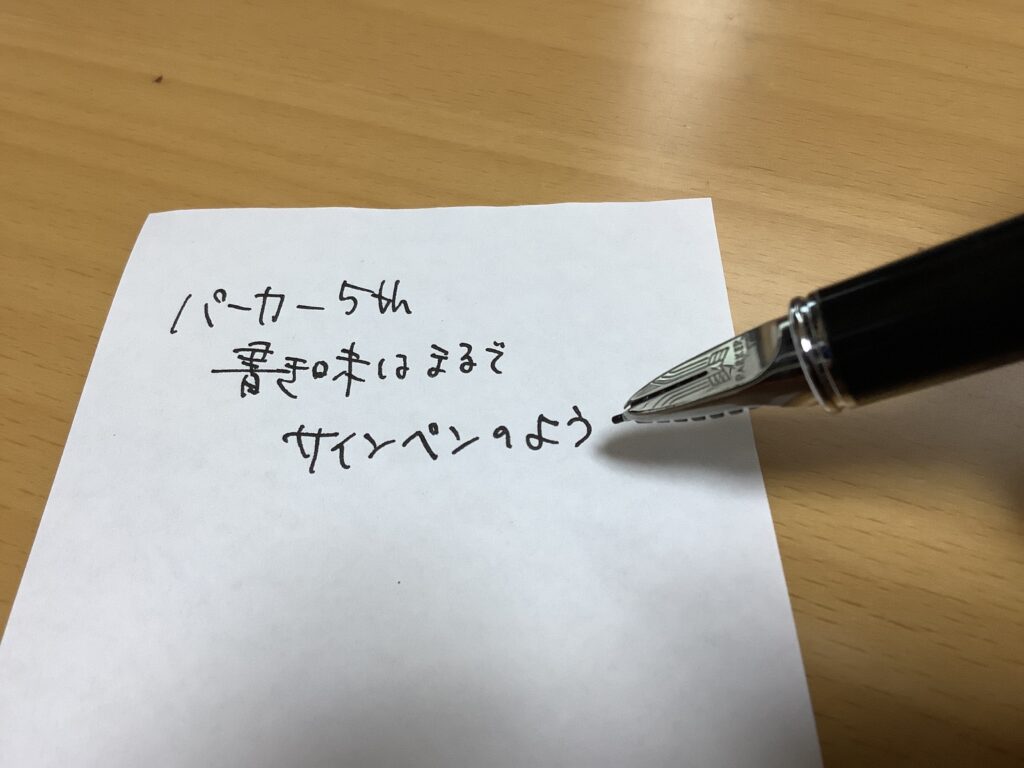 パーカー5th
書き味はまるで
サインペンのよう
PARKER